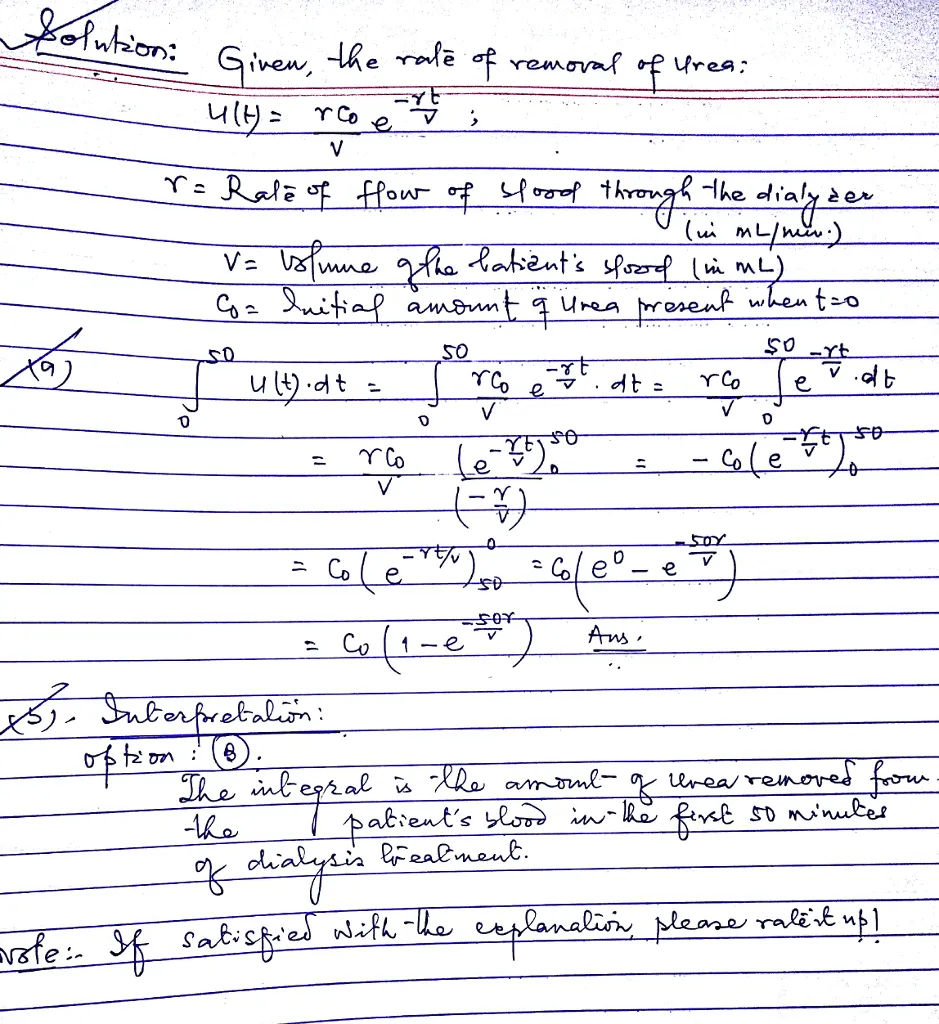 Solution: Given, the rate of removal of urea:
u(t) = rC₀/V e^(-rt/V) ;
r = Rate of flow of blood through the dialyzer
(in mL/min.)
V = Volume of the patient's blood (in mL)
C₀ = Initial amount of urea present when t=0
(a) ∫₀⁵⁰ u(t).dt = ∫₀⁵⁰ rC₀/V e^(-rt/V) . dt = rC₀/V ∫₀⁵⁰ e^(-rt/V) .dt
= rC₀/V (e^(-rt/V))₀⁵⁰ / (-r/V) = - C₀ (e^(-rt/V))₀⁵⁰
= C₀ (e^(-rt/V))₅₀⁰ = C₀ (e⁰ - e^(-50r/V))
= C₀ (1 - e^(-50r/V)) Ans.
(b). Interpretation:
option : (B).
The integral is the amount of urea removed from
the patient's blood in the first 50 minutes
of dialysis treatment.
Note:- If satisfied with the explanation, please rate it up!